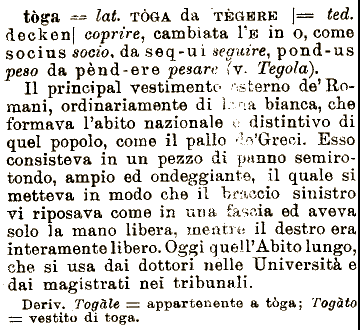 tòga = lat. TÒGA da TÈGERE |= ted.
decken| coprire, cambiata l'E in O, come
socius socio, da seq-ui seguire, pond-us
peso da pènd-ere pesare (v. Tegola).
Il principal vestimento esterno de' Ro-
mani, ordinariamente di lana bianca, che
formava l'abito nazionale e distintivo di
quel popolo, come il pallo de'Greci. Esso
consisteva in un pezzo di panno semiro-
tondo, ampio ed ondeggiante, il quale si
metteva in modo che il braccio sinistro
vi riposava come in una fascia ed aveva
solo la mano libera, mentre il destro era
interamente libero. Oggi quell'Abito lungo,
che si usa dai dottori nelle Università e
dai magistrati nei tribunali.
Deriv. Togàle = appartenente a tòga; Togàto
= vestito di toga.